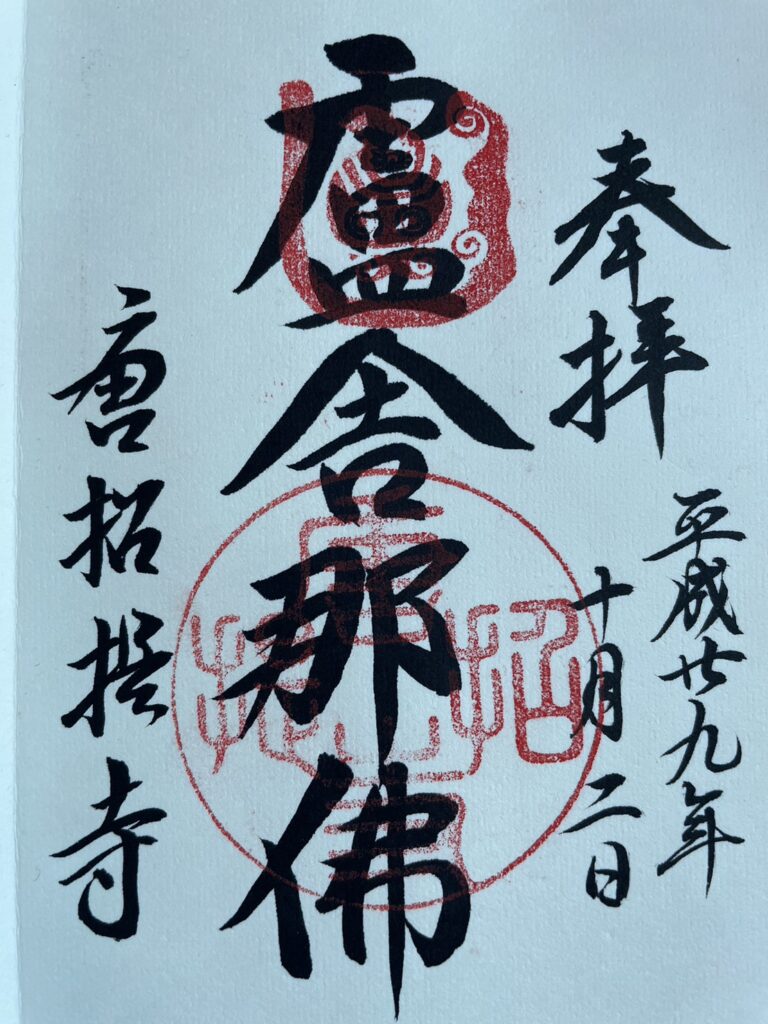 奉拝
平成廿九年
十月二日
盧舎那佛
唐招提寺